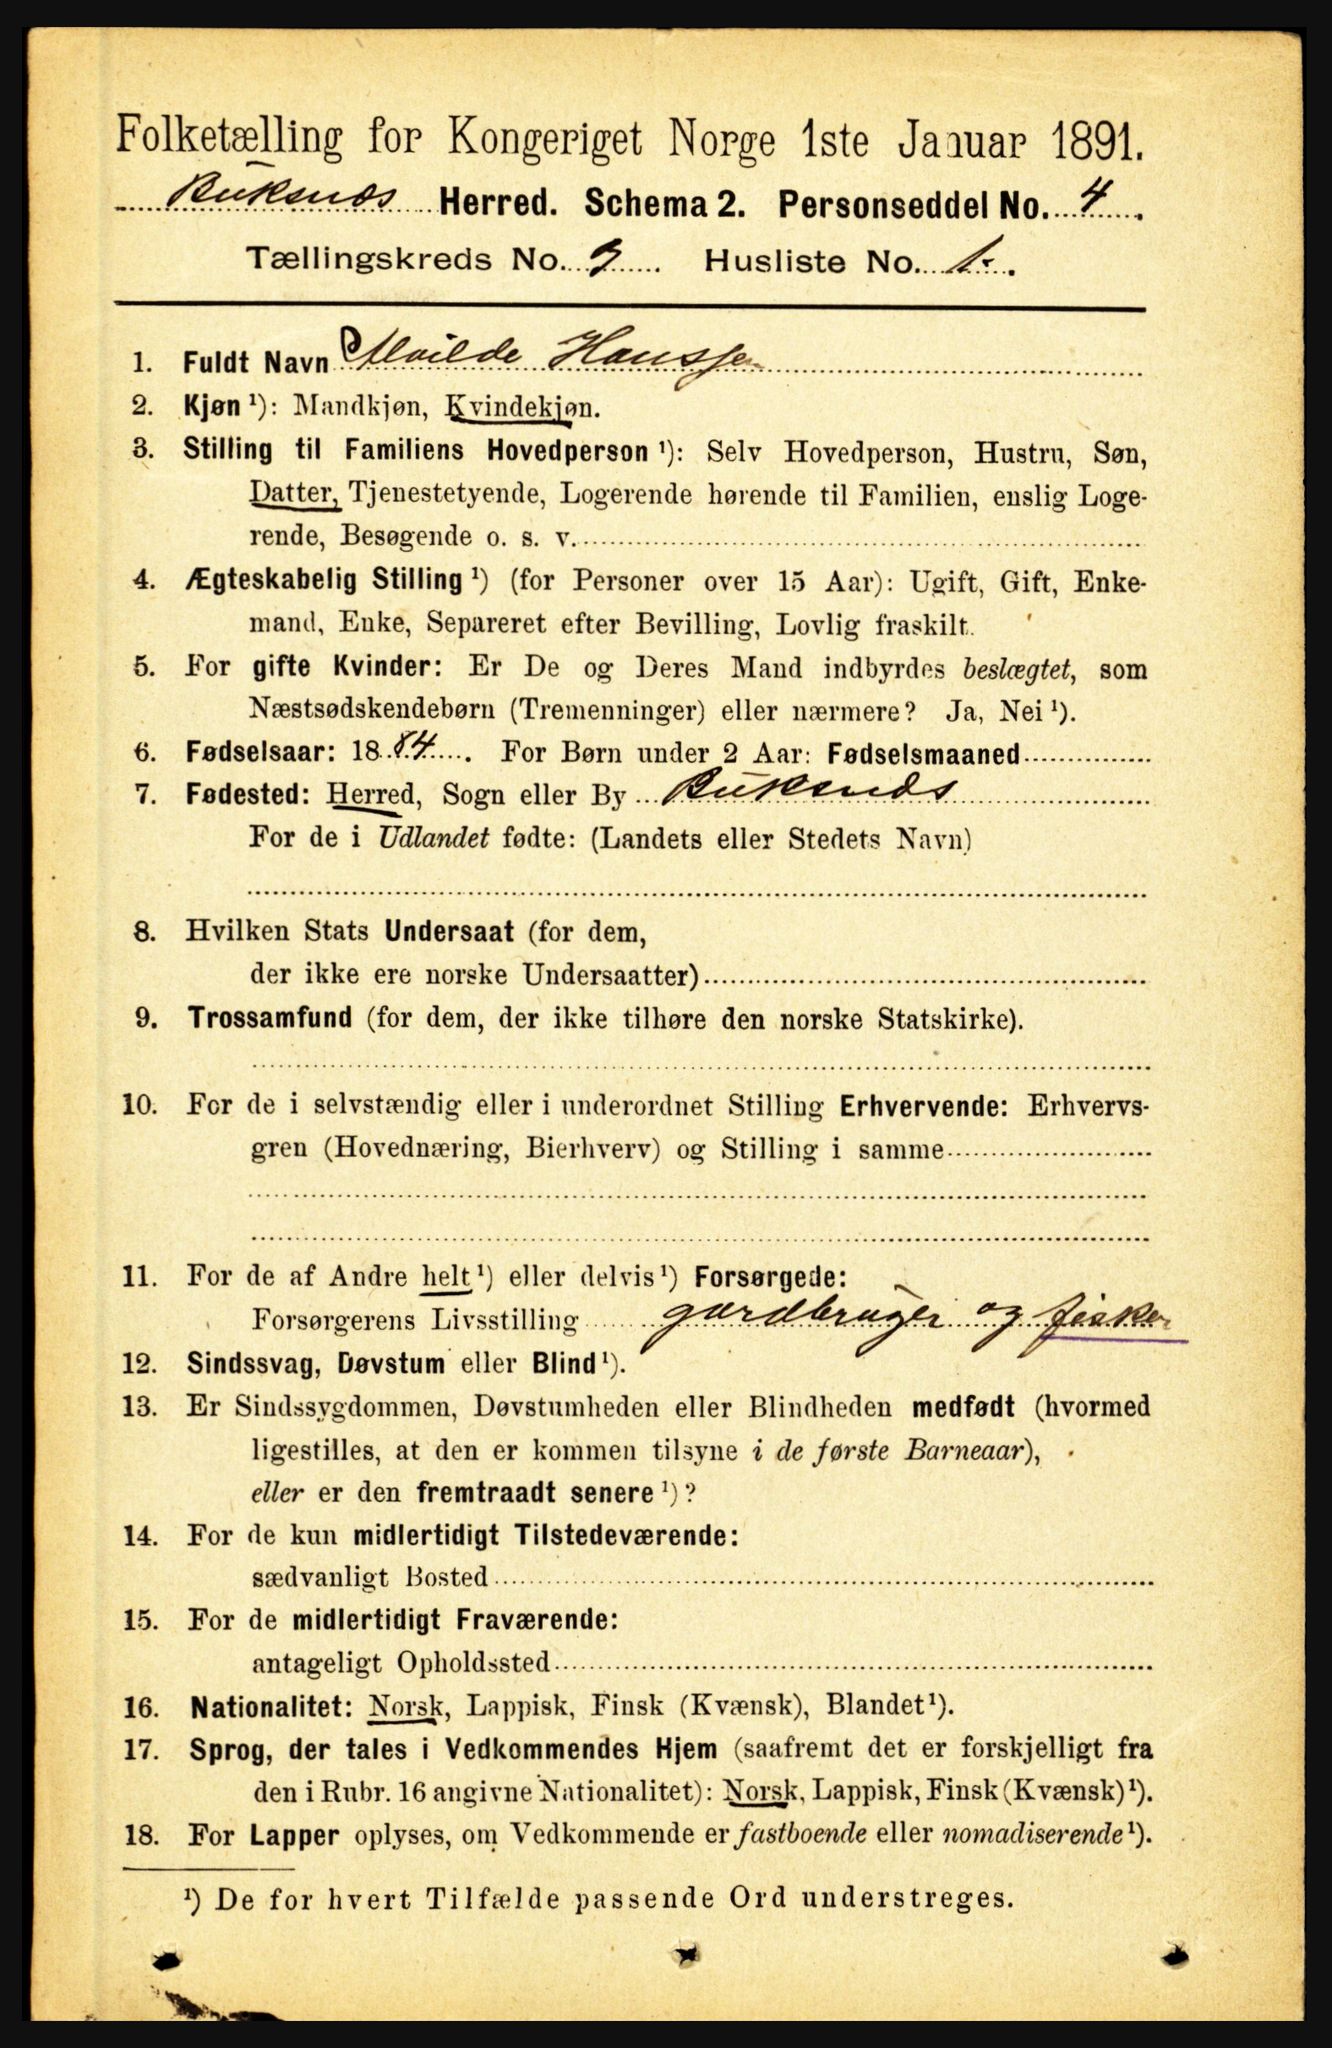 Folketælling for Kongeriget Norge 1ste Januar 1891.
Buksnæs Herred. Schema 2. Personseddel No. 4.
Tællingskreds No. 9. Husliste No. 1.
1. Fuldt Navn Alvilde Hanssen
2. Kjøn ¹): Mandkjøn, Kvindekjøn.
3. Stilling til Familiens Hovedperson ¹): Selv Hovedperson, Hustru, Søn,
Datter, Tjenestetyende, Logerende hørende til Familien, enslig Loge-
rende, Besøgende o. s. v.
4. Ægteskabelig Stilling ¹) (for Personer over 15 Aar): Ugift, Gift, Enke-
mand, Enke, Separeret efter Bevilling, Lovlig fraskilt.
5. For gifte Kvinder: Er De og Deres Mand indbyrdes beslægtet, som
Næstsødskendebørn (Tremenninger) eller nærmere? Ja, Nei ¹).
6. Fødselsaar: 1884. For Børn under 2 Aar: Fødselsmaaned
7. Fødested: Herred, Sogn eller By Buksnæs
For de i Udlandet fødte: (Landets eller Stedets Navn)
8. Hvilken Stats Undersaat (for dem,
der ikke ere norske Undersaatter)
9. Trossamfund (for dem, der ikke tilhøre den norske Statskirke).
10. For de i selvstændig eller i underordnet Stilling Erhvervende: Erhvervs-
gren (Hovednæring, Bierhverv) og Stilling i samme
11. For de af Andre helt ¹) eller delvis ¹) Forsørgede:
Forsørgerens Livsstilling gardbruger og fisker
12. Sindssvag, Døvstum eller Blind ¹).
13. Er Sindssygdommen, Døvstumheden eller Blindheden medfødt (hvormed
ligestilles, at den er kommen tilsyne i de første Barneaar),
eller er den fremtraadt senere ¹)?
14. For de kun midlertidigt Tilstedeværende:
sædvanligt Bosted
15. For de midlertidigt Fraværende:
antageligt Opholdssted
16. Nationalitet: Norsk, Lappisk, Finsk (Kvænsk), Blandet ¹).
17. Sprog, der tales i Vedkommendes Hjem (saafremt det er forskjelligt fra
den i Rubr. 16 angivne Nationalitet): Norsk, Lappisk, Finsk (Kvænsk) ¹).
18. For Lapper oplyses, om Vedkommende er fastboende eller nomadiserende ¹).
¹) De for hvert Tilfælde passende Ord understreges.